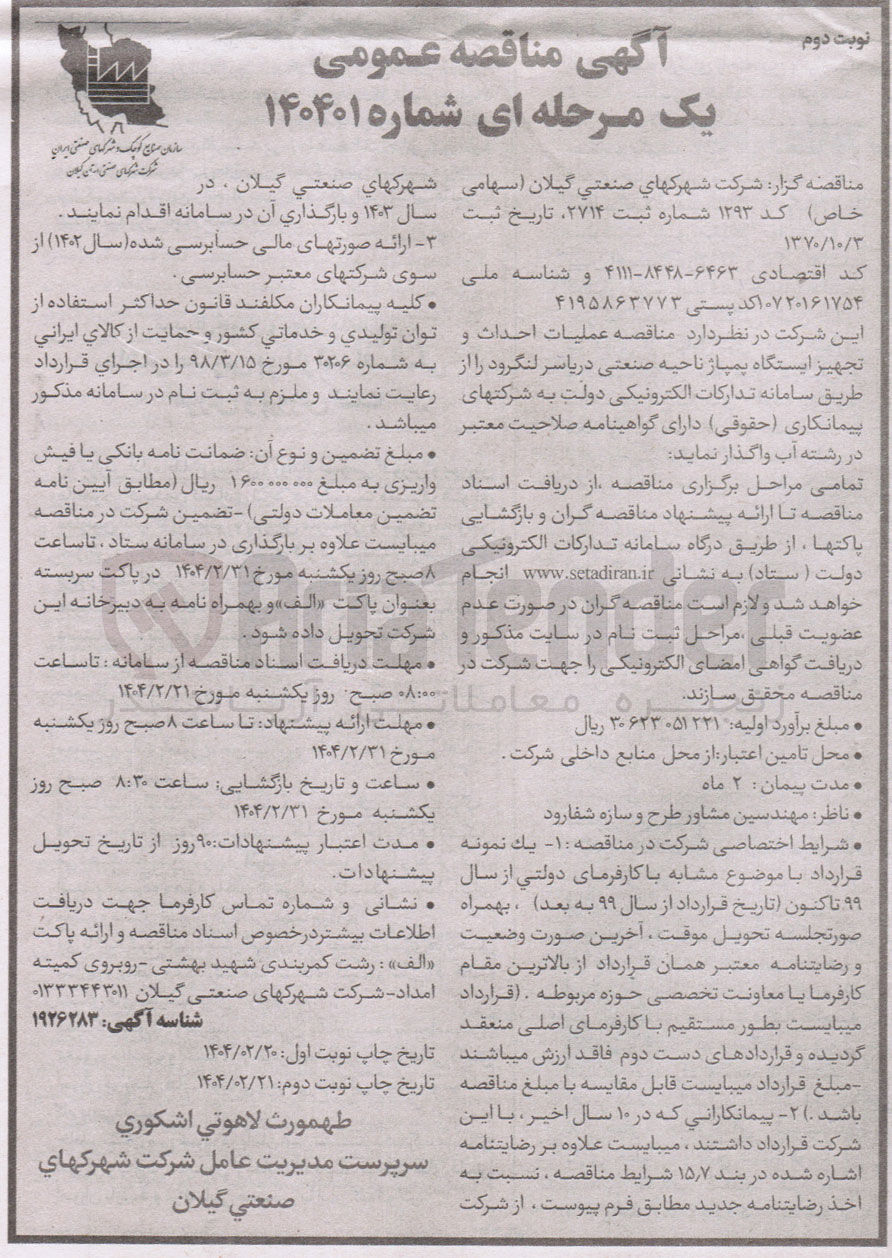 نوبت دوم
آگهی مناقصه عمومی
یک مرحله ای شماره ۱۴۰۴۰۱
سازمان صنایع کوچک و شهرکهای صنعتی ایران
شرکت شهرکهای صنعتی استان گیلان
مناقصه گزار: شرکت شهرکهاي صنعتي گيلان (سهامی
خاص) کد ۱۲۹۳ شماره ثبت ۲۷۱۴، تاریخ ثبت
۱۳۷۰/۱۰/۳
کد اقتصادی ۶۴۶۳-۸۴۴۸-۴۱۱۱ و شناسه ملی
۱۰۷۲۰۱۶۱۷۵۴کدپستی ۴۱۹۵۸۶۳۷۷۳
این شرکت در نظردارد مناقصه عملیات احداث و
تجهیز ایستگاه پمپاژ ناحیه صنعتی دریاسر لنگرود را از
طریق سامانه تدارکات الکترونیکی دولت به شرکتهای
پیمانکاری (حقوقی) دارای گواهینامه صلاحیت معتبر
در رشته آب واگذار نماید:
تمامی مراحل برگزاری مناقصه ،از دریافت اسناد
مناقصه تا ارائه پیشنهاد مناقصه گران و بازگشایی
پاکتها ، از طریق درگاه سامانه تدارکات الکترونیکی
دولت ( ستاد) به نشانی www.setadiran.ir انجام
خواهد شد و لازم است مناقصه گران در صورت عدم
عضویت قبلی ،مراحل ثبت نام در سایت مذکور و
دریافت گواهی امضای الکترونیکی را جهت شرکت در
مناقصه محقق سازند.
• مبلغ برآورد اولیه: ۳۰ ۶۲۳ ۰۵۱ ۲۲۱ ریال
• محل تامین اعتبار:از محل منابع داخلی شرکت .
• مدت پیمان : ۲ ماه
• ناظر: مهندسین مشاور طرح و سازه شفارود
• شرایط اختصاصی شرکت در مناقصه : ۱- يك نمونه
قرارداد با موضوع مشابه با کارفرمای دولتي از سال
۹۹ تاکنون (تاریخ قرارداد از سال ۹۹ به بعد) ، بهمراه
صورتجلسه تحویل موقت ، آخرین صورت وضعیت
و رضایتنامه معتبر همان قرارداد از بالاترین مقام
کارفرما یا معاونت تخصصی حوزه مربوطه . (قرارداد
میبایست بطور مستقیم با کارفرمای اصلی منعقد
گردیده و قراردادهای دست دوم فاقد ارزش میباشند
-مبلغ قرارداد میبایست قابل مقایسه با مبلغ مناقصه
باشد .) ۲- پیمانکاراني که در ۱۰ سال اخیر ، با این
شرکت قرارداد داشتند ، میبایست علاوه بر رضایتنامه
اشاره شده در بند ۱۵٫۷ شرایط مناقصه ، نسبت به
اخذ رضایتنامه جدید مطابق فرم پیوست ، از شرکت
شهرکهاي صنعتي گيلان ، در
سال ۱۴۰۳ و بارگذاري آن در سامانه اقدام نمایند .
۳- ارائه صورتهای مالی حسابرسی شده(سال ۱۴۰۲) از
سوی شرکتهای معتبر حسابرسی .
• کلیه پیمانکاران مکلفند قانون حداکثر استفاده از
توان تولیدي و خدماتي کشور و حمایت از کالاي ایراني
به شماره ۳۰۲۰۶ مورخ ۹۸/۳/۱۵ را در اجراي قرارداد
رعایت نمایند و ملزم به ثبت نام در سامانه مذکور
میباشد .
• مبلغ تضمین و نوع آن: ضمانت نامه بانکی یا فیش
واریزی به مبلغ ۱۶۰۰ ۰۰۰ ۰۰۰ ریال (مطابق آیین نامه
تضمین معاملات دولتی) -تضمین شرکت در مناقصه
میبایست علاوه بر بارگذاری در سامانه ستاد ، تاساعت
۸صبح روز یکشنبه مورخ ۱۴۰۴/۲/۳۱ در پاکت سربسته
بعنوان پاکت «الف»و بهمراه نامه به دبیرخانه این
شرکت تحویل داده شود .
• مهلت دریافت اسناد مناقصه از سامانه : تاساعت
۰۸:۰۰ صبح روز یکشنبه مورخ ۱۴۰۴/۲/۲۱
• مهلت ارائه پیشنهاد: تا ساعت ۸صبح روز یکشنبه
مورخ ۱۴۰۴/۲/۳۱
• ساعت و تاریخ بازگشایی: ساعت ۸:۳۰ صبح روز
یکشنبه مورخ ۱۴۰۴/۲/۳۱
• مدت اعتبار پیشنهادات:۹۰روز از تاریخ تحویل
پیشنهادات.
• نشانی و شماره تماس کارفرما جهت دریافت
اطلاعات بیشتردرخصوص اسناد مناقصه و ارائه پاکت
«الف» : رشت کمربندی شهید بهشتی -روبروی کمیته
امداد-شرکت شهرکهای صنعتی گیلان ۰۱۳۳۳۴۴۳۰۱۱
شناسه آگهی: ۱۹۲۶۲۸۳
تاریخ چاپ نوبت اول: ۱۴۰۴/۰۲/۲۰
تاریخ چاپ نوبت دوم: ۱۴۰۴/۰۲/۲۱
طهمورث لاهوتي اشکوري
سرپرست مدیریت عامل شرکت شهرکهاي
صنعتي گیلان